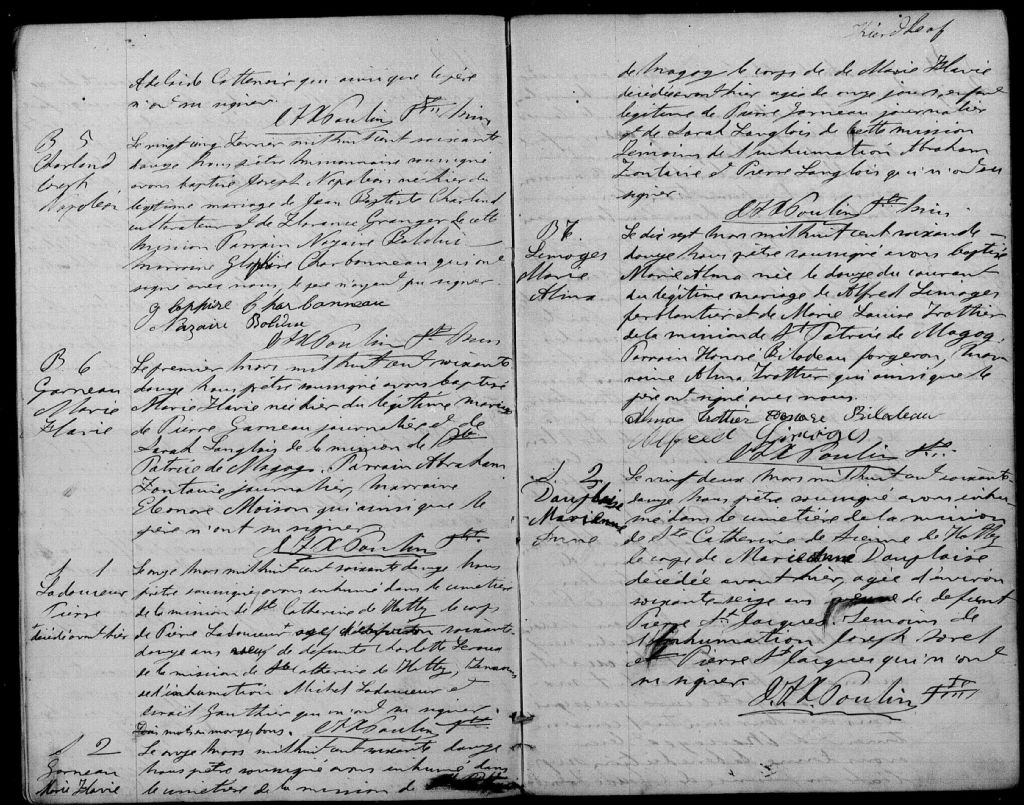 Adelaide Cottenoir qui ainsi que le père
n'ont su signer.
J.F.X. Poulin Ptre Miss
B 5
Charland
Joseph
Napoleon
Le vingt cinq Fevrier mil huit cent soixante
douze nous prêtre missionnaire soussigné
avons baptisé Joseph Napoleon né hier du
légitime mariage de Jean Baptiste Charland
cultivateur et de Florence Granger de cette
mission Parrain Nazaire Bolduc
marraine Charbonneau qui ont
signé avec nous, le père n'ayant pu signer.
Charbonneau
Nazaire Bolduc
J.F.X. Poulin Ptre Miss
B 6
Garneau
Marie
Flavie
Le premier Mars mil huit cent soixante
douze nous prêtre soussigné avons baptisé
Marie Flavie née hier du légitime mariage
de Pierre Garneau journalier et de
Sarah Langlois de la mission de St
Patrice de Magog. Parrain Abraham
Fontaine journalier, marraine
Eleonore Moison qui ainsi que le
père n'ont su signer.
J.F.X. Poulin Ptre
S 1
Ladouceur
Pierre
décédé avant hier
Le onze Mars mil huit cent soixante douze nous
prêtre soussigné avons inhumé dans le cimetière
de la mission de Ste Catherine de Hatley le corps
de Pierre Ladouceur agé d'environ soixante
douze ans de defunte Charlotte
de la mission de Ste Catherine de Hatley, Témoins
de l'inhumation Michel Ladouceur et
Gauthier qui n'ont su signer.
Trois mots en marge bons. J.F.X. Poulin Ptre
S 2
Garneau
Marie Flavie
Le onze Mars mil huit cent soixante douze
nous prêtre soussigné avons inhumé dans
le cimetière de la mission de
Third Leaf
de Magog le corps de Marie Flavie
décédée avant hier agée de onze jours, enfant
légitime de Pierre Garneau journalier
et de Sarah Langlois de cette mission
Témoins de l'inhumation Abraham
Fontaine et Pierre Langlois qui n'ont su
signer.
J.F.X. Poulin Ptre Miss
B 7.
Limoges
Marie
Alma
Le dix sept Mars mil huit cent soixante
douze nous prêtre soussigné avons baptisé
Marie Alma née le douze du courant
du légitime mariage de Alfred Limoges
ferblantier et de Marie Louise Trottier
de la mission de St Patrice de Magog.
Parrain Honoré Bilodeau forgeron, mar
raine Alma Trottier qui ainsi que le
père ont signé avec nous.
Alma Trottier Honore Bilodeau
Alfred Limoges
J.F.X. Poulin Ptre
S. 2
Dauplaise
Marie
Anne
Le vingt deux Mars mil huit cent soixante
douze nous prêtre soussigné avons inhu
mé dans le cimetière de la mission
de Ste Catherine de Sienne de Hatley
le corps de Marie Anne Dauplaise
décédée avant hier, agée d'environ
soixante seize ans de defunt
Pierre St Jacques. Témoins de
l'inhumation Joseph Sorel
et Pierre St Jacques qui n'ont
su signer.
J.F.X. Poulin Ptre